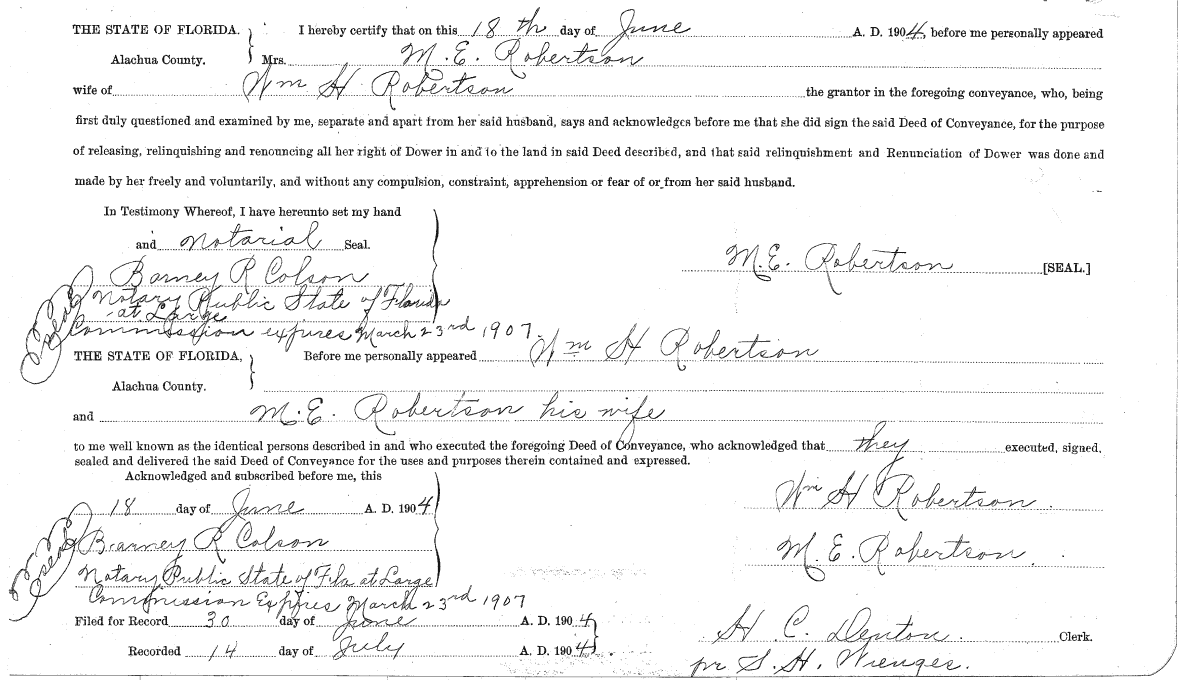 THE STATE OF FLORIDA. I hereby certify that on this 18th day of June A. D. 1904, before me personally appeared
Alachua County. Mrs. M. E. Robertson
wife of Wm H Robertson the grantor in the foregoing conveyance, who, being
first duly questioned and examined by me, separate and apart from her said husband, says and acknowledges before me that she did sign the said Deed of Conveyance, for the purpose
of releasing, relinquishing and renouncing all her right of Dower in and to the land in said Deed described, and that said relinquishment and Renunciation of Dower was done and
made by her freely and voluntarily, and without any compulsion, constraint, apprehension or fear of or from her said husband.
In Testimony Whereof, I have hereunto set my hand
and notarial Seal.
M.E. Robertson [SEAL.]
Barney R Colson
Notary Public State of Florida
at Large
Commission expires March 23rd 1907.
(Seal)
THE STATE OF FLORIDA, Before me personally appeared Wm H Robertson
Alachua County.
and M.E. Robertson his wife
to me well known as the identical persons described in and who executed the foregoing Deed of Conveyance, who acknowledged that they executed, signed,
sealed and delivered the said Deed of Conveyance for the uses and purposes therein contained and expressed.
Acknowledged and subscribed before me, this
18 day of June A. D. 1904
Wm H Robertson.
Barney R Colson
M. E. Robertson.
Notary Public State of Fla at Large
Commission Expires March 23rd 1907
(Seal)
Filed for Record 30 day of June A. D. 1904
H C. Denton. Clerk.
Recorded 14 day of July A. D. 1904.
pr S. H. Wienges.